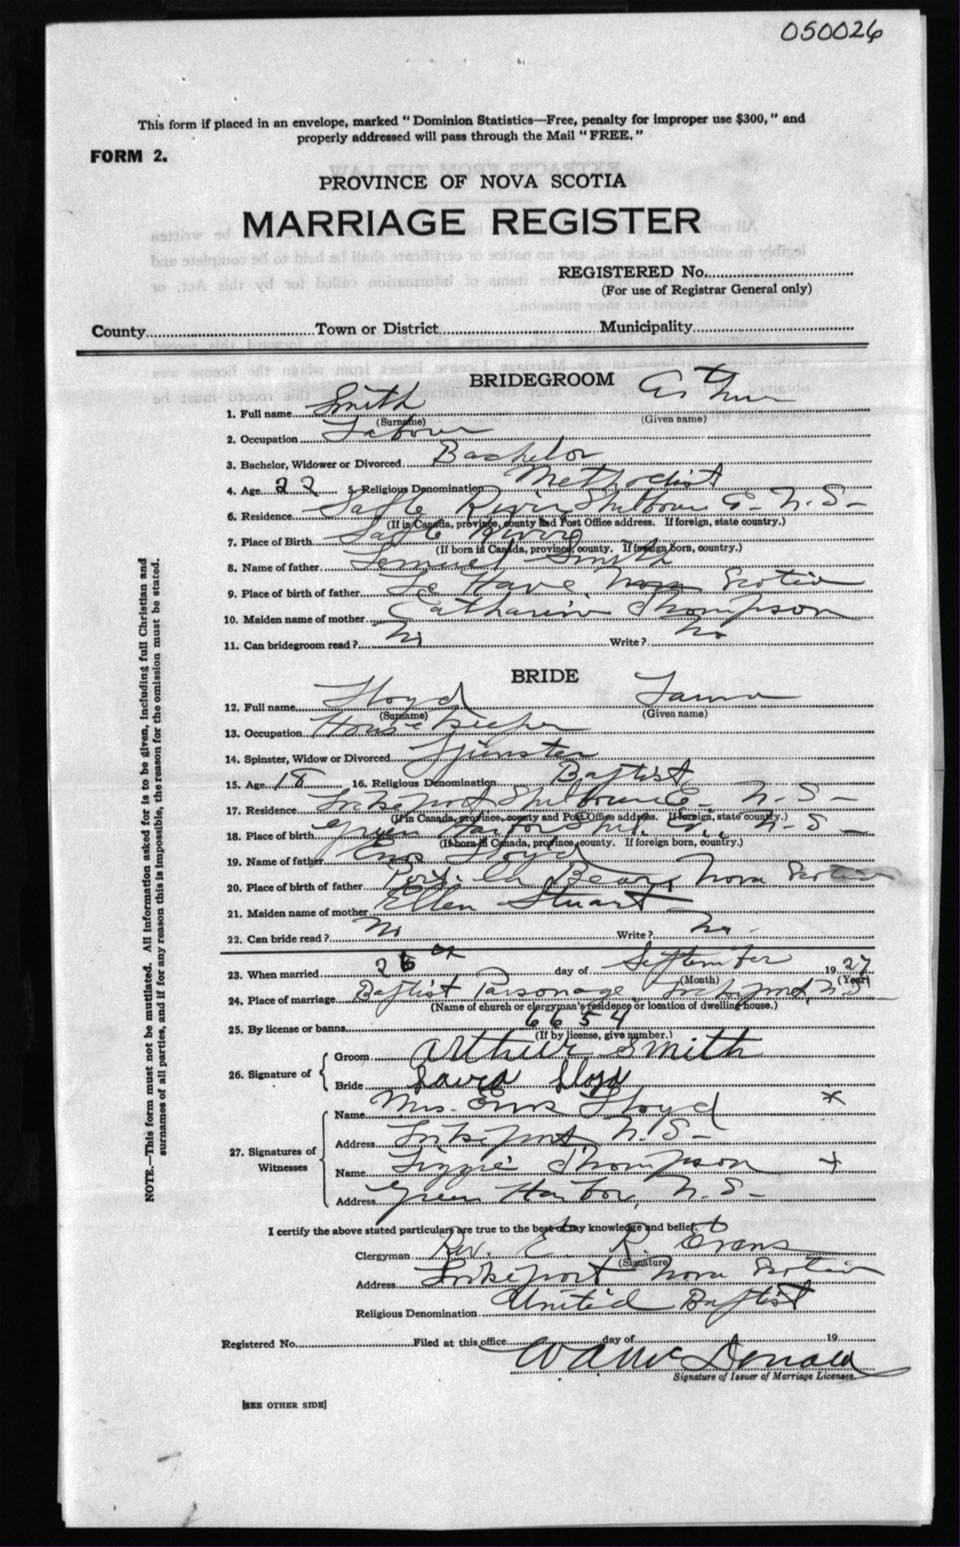 050026
This form if placed in an envelope, marked "Dominion Statistics—Free, penalty for improper use $300," and
properly addressed will pass through the Mail "FREE."
FORM 2.
PROVINCE OF NOVA SCOTIA
MARRIAGE REGISTER
REGISTERED No.
(For use of Registrar General only)
County Town or District Municipality
BRIDEGROOM
1. Full name Smith Arthur
(Surname) (Given name)
2. Occupation Labour
3. Bachelor, Widower or Divorced Bachelor
4. Age 22 5. Religious Denomination Methodist
6. Residence Sable River Shelburne Co. N.S.
(If in Canada, province, county and Post Office address. If foreign, state country.)
7. Place of Birth Sable River
(If born in Canada, province, county. If foreign born, country.)
8. Name of father Lemuel Smith
9. Place of birth of father Le Have, Nova Scotia
10. Maiden name of mother Catharine Thompson
11. Can bridegroom read? No Write? No
BRIDE
12. Full name Lloyd Laura
(Surname) (Given name)
13. Occupation House Keeper
14. Spinster, Widow or Divorced Spinster
15. Age 18 16. Religious Denomination Baptist
17. Residence Lockeport Shelburne Co. N.S.
(If in Canada, province, county and Post Office address. If foreign, state country.)
18. Place of birth Green Harbor Shel. Co., N.S.
(If born in Canada, province, county. If foreign born, country.)
19. Name of father Lloyd
20. Place of birth of father Port La Bear, Nova Scotia
21. Maiden name of mother Ellen Stuart
22. Can bride read? No Write? No.
23. When married 26 th day of September 1927
(Month) (Year)
24. Place of marriage Baptist Parsonage Lockeport, N.S.
(Name of church or clergyman's residence or location of dwelling house.)
25. By license or banns 6654
(If by license, give number.)
26. Signature of Groom Arthur Smith
Bride Laura Lloyd
27. Signatures of Witnesses
Name Mrs. Lloyd X
Address Lockeport, N.S.
Name Lizzie Thompson X
Address Green Harbor, N.S.
I certify the above stated particulars are true to the best of my knowledge and belief.
Clergyman Rev. E. R. Evans
(Signature)
Address Lockeport Nova Scotia
Religious Denomination United Baptist
Registered No. Filed at this office day of 19
W A McDonald
Signature of Issuer of Marriage Licenses.
[SEE OTHER SIDE]
NOTE.—This form must not be mutilated. All information asked for is to be given, including full Christian and
surnames of all parties, and if for any reason this is impossible, the reason for the omission must be stated.